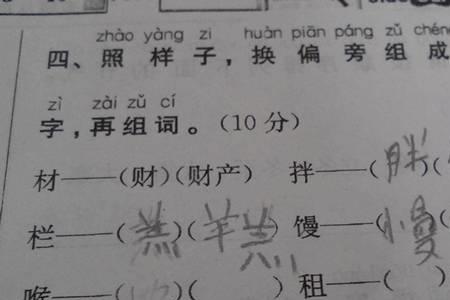 zhào yàng zi huàn piān páng zǔ chéng
四、照样子,换偏旁组成
zì zài zǔ cí
字,再组词。(10分)
材——(财)(财产) 拌——(胖)(
栏——( )(羊 ) 馒——(慢
喉——( )( ) 租——( )